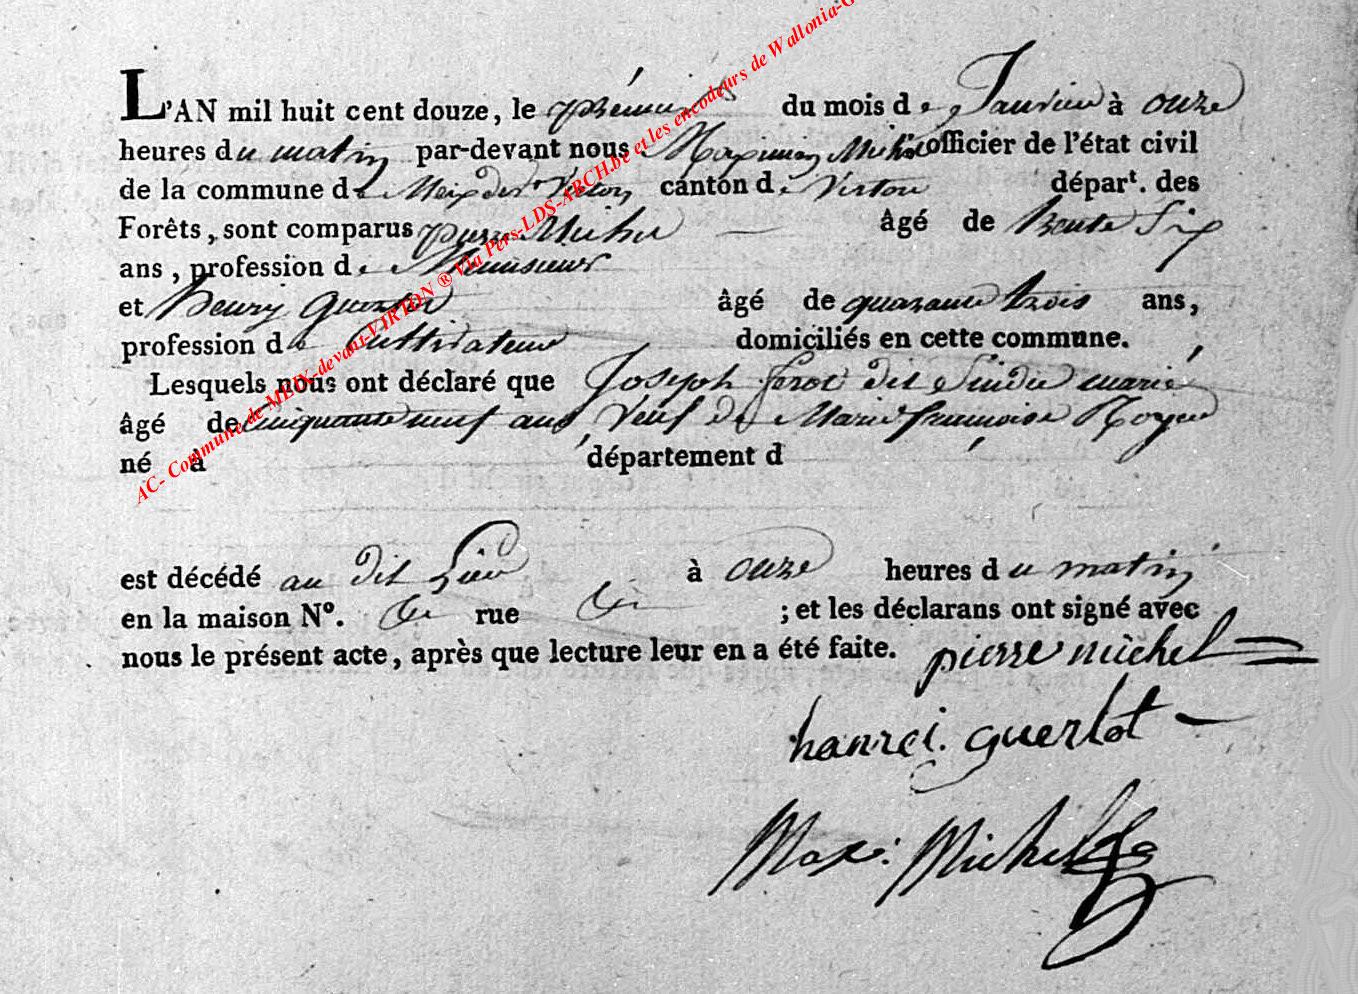 L'AN mil huit cent douze, le premier du mois de Janvier à onze
heures du matin par-devant nous Maximin Michel officier de l'état civil
de la commune de Meix devt Virton canton de Virton épart. des
Forêts, sont comparus pierre Michel âgé de trente Six
ans, profession de Menuisier
et henry âgé de quarante trois ans,
profession de Cultivateur domiciliés en cette commune.
Lesquels nous ont déclaré que Joseph dit marié
âgé de Cinquante neuf ans, Veuf de Marie françoise
né à département d
est décédé au dit Lieu à onze heures du matin
en la maison Nº. rue ; et les déclarans ont signé avec
nous le présent acte, après que lecture leur en a été faite. pierre michel
hanrei. guerlot
Max: Michel
AC- Commune de MEIX-devant-VIRTON ® Via Pers-LDS-ARCH.be et les encodeurs de Wallonia-G